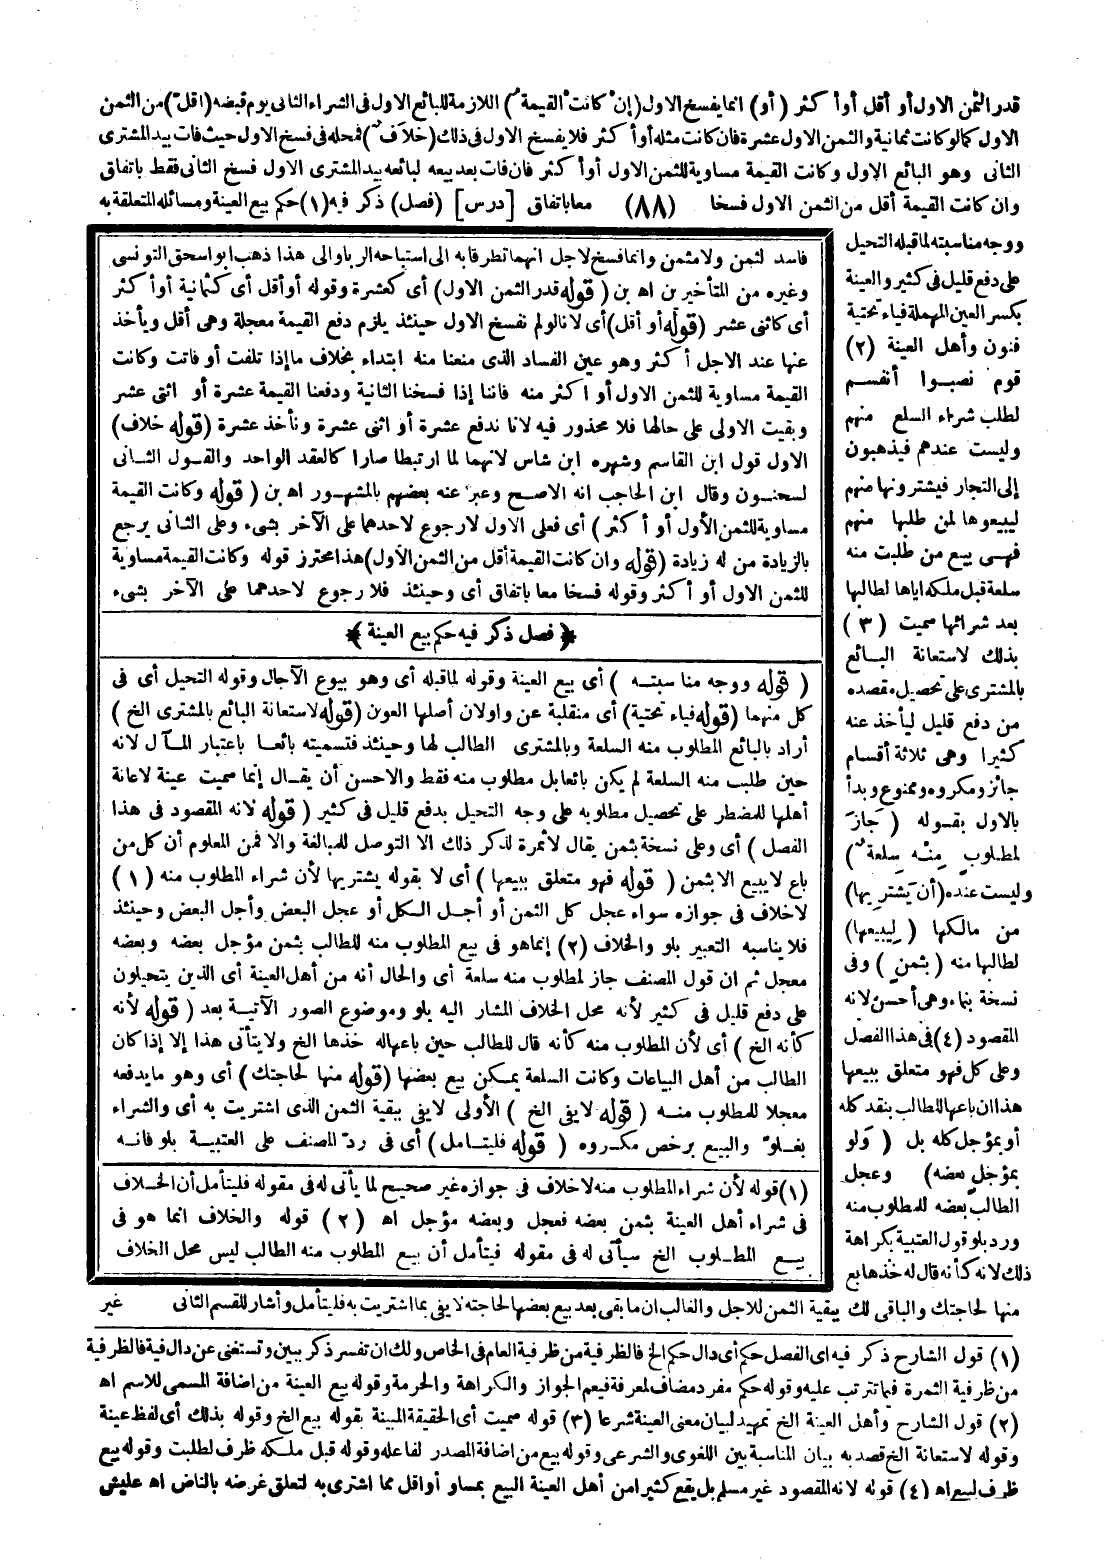 قدر الثمن الاول أو أقل أو أكثر (أو) انما يفسخ الاول (إن كانت القيمة) اللازمة للبائع الاول فى الشراء الثانى يوم قبضه (اقل) من الثمن
الاول كما لو كانت ثمانية والثمن الاول عشرة فان كانت مثله أو أكثر فلا يفسخ الاول فى ذلك (خلاف) فمحله فى فسخ الاول حيث فات بيد المشترى
الثانى وهو البائع الاول وكانت القيمة مساوية للثمن الاول أو أكثر فان فات بعد بيعه لبائعه بيد المشترى الاول فسخ الثانى فقط باتفاق
وان كانت القيمة أقل من الثمن الاول فسخا (٨٨) معا باتفاق [درس] (فصل) ذكر فيه (١) حكم بيع العينة ومسائله المتعلقة به
ووجه مناسبته لما قبله التحيل
على دفع قليل فى كثير والعينة
بكسر العين المهملة فياء تحتية
فنون وأهل العينة (٢)
قوم نصبوا أنفسهم
لطلب شراء السلع منهم
وليست عندهم فيذهبون
إلى التجار فيشترونها منهم
ليبيعوها لمن طلبها منهم
فهى بيع من طلبت منه
سلعة قبل ملكه اياها لطالبها
بعد شرائها سميت (٣)
بذلك لاستعانة البائع
بالمشترى على تحصيل مقصده
من دفع قليل ليأخذ عنه
كثيرا وهى ثلاثة أقسام
جائز ومكروه وممنوع وبدأ
بالاول بقوله (جَازَ
لمطلوب منه سلعة)
وليست عنده (أن يشتريها)
من مالكها (ليبيعها)
لطالبها منه (بثمن) وفى
نسخة بنماء وهى أحسن لانه
المقصود (٤) فى هذا الفصل
وعلى كل فهو متعلق ببيعها
هذا ان باعها للطالب بنقد كله
أو بمؤجل كله بل (ولو
بمؤجل بعضه) وعجل
الطالب بعضه للمطلوب منه
ورد بلو قول العتبية بكراهة
ذلك لانه كأنه قال له خذها بع
فاسد لثمن ولا مثمن وانما فسخ لاجل انهما تطرقا به الى استباحه الربا والى هذا ذهب ابو اسحق التونسى
وغيره من المتأخرين اه بن (قوله قدر الثمن الاول) أى كعشرة وقوله أو أقل أى كثمانية أو أكثر
أى كاثنى عشر (قوله أو أقل) أى لانا لو لم نفسخ الاول حينئذ يلزم دفع القيمة معجلة وهى أقل ويأخذ
عنها عند الاجل أكثر وهو عين الفساد الذى منعنا منه ابتداء بخلاف ما إذا تلفت أو فاتت وكانت
القيمة مساوية للثمن الاول أو اكثر منه فاننا إذا فسخنا الثانية ودفعنا القيمة عشرة أو اثنى عشر
وبقيت الاولى على حالها فلا محذور فيه لانا ندفع عشرة أو اثنى عشرة ونأخذ عشرة (قوله خلاف)
الاول قول ابن القاسم وشهره ابن شاس لانهما لما ارتبطا صارا كالعقد الواحد والقول الثانى
لسحنون وقال ابن الحاجب انه الاصح وعبر عنه بعضهم بالمشهور اه بن (قوله وكانت القيمة
مساوية للثمن الأول أو أكثر) أى فعلى الاول لا رجوع لاحدهما على الآخر بشىء وعلى الثانى يرجع
بالزيادة من له زيادة (قوله وان كانت القيمة أقل من الثمن الأول) هذا محترز قوله وكانت القيمة مساوية
للثمن الاول أو أكثر وقوله فسخا معا باتفاق أى وحينئذ فلا رجوع لاحدهما على الآخر بشىء
﴿فصل ذكر فيه حكم بيع العينة﴾
(قوله ووجه مناسبته) أى بيع العينة وقوله لما قبله أى وهو بيوع الآجال وقوله التحيل أى فى
كل منهما (قوله فياء تحتية) أى منقلبة عن واو لان أصلها العون (قوله لاستعانة البائع بالمشترى الخ)
أراد بالبائع المطلوب منه السلعة وبالمشترى الطالب لها وحينئذ فتسميته بائعا باعتبار المآل لانه
حين طلبت منه السلعة لم يكن بائعا بل مطلوب منه فقط والاحسن أن يقال إنما سميت عينة لاعانة
أهلها للمضطر على تحصيل مطلوبه على وجه التحيل بدفع قليل فى كثير (قوله لانه المقصود فى هذا
الفصل) أى وعلى نسخة بثمن يقال لا ثمرة لذكر ذلك الا التوصل للمبالغة والا فمن المعلوم أن كل من
باع لا يبيع الا بثمن (قوله فهو متعلق ببيعها) أى لا بقوله يشتريها لأن شراء المطلوب منه (١)
لا خلاف فى جوازه سواء عجل كل الثمن أو أجل الكل أو عجل البعض وأجل البعض وحينئذ
فلا يناسبه التعبير بلو والخلاف (٢) إنما هو فى بيع المطلوب منه للطالب بثمن مؤجل بعضه وبعضه
معجل ثم ان قول المصنف جاز لمطلوب منه سلعة أى والحال أنه من أهل العينة أى الذين يتحيلون
على دفع قليل فى كثير لأنه محل الخلاف المشار اليه بلو وموضوع الصور الآتية بعد (قوله لأنه
كأنه الخ) أى لأن المطلوب منه كأنه قال للطالب حين باعها له خذها الخ ولا يتأتى هذا إلا إذا كان
الطالب من أهل البياعات وكانت السلعة يمكن بيع بعضها (قوله منها لحاجتك) أى وهو ما يدفعه
معجلا للمطلوب منه (قوله لا يفى الخ) الأولى لا يفى ببقية الثمن الذى اشتريت به أى والشراء
بغلو والبيع برخص مكروه (قوله فليتأمل) أى فى ردّ المصنف على العتبية بلو فانه
(١) قوله لأن شراء المطلوب منه لا خلاف فى جوازه غير صحيح لما يأتى له فى مقوله فليتأمل أن الخلاف
فى شراء أهل العينة بثمن بعضه فعجل وبعضه مؤجل اه (٢) قوله والخلاف انما هو فى
بيع المطلوب الخ سيأتى له فى مقوله فيتأمل أن بيع المطلوب منه الطالب ليس محل الخلاف
منها لحاجتك والباقى لك ببقية الثمن للاجل والغالب ان ما بقى بعد بيع بعضها لحاجته لا يفى بما اشتريت به فليتأمل وأشار للقسم الثانى غير
(١) قول الشارح ذكر فيه اى الفصل حكم أى دال حكم الخ فالظرفية من ظرفية العام فى الخاص ولك ان تفسر ذكر ببين وتستغنى عن دال فية فالظرفية
من ظرفية الثمرة فيما تترتب عليه وقوله حكم مفرد مضاف لمعرفة فيعم الجواز والكراهة والحرمة وقوله بيع العينة من اضافة المسمى للاسم اه
(٢) قول الشارح وأهل العينة الخ تمهيد لبيان معنى العينة شرعا (٣) قوله سميت أى الحقيقة المبينة بقوله بيع الخ وقوله بذلك أى لفظ عينة
وقوله لاستعانة الخ قصد به بيان المناسبة بين اللغوى والشرعى وقوله بيع من اضافة المصدر لفاعله وقوله قبل ملكه ظرف لطلبت وقوله بيع
ظرف لبيع اه (٤) قوله لانه المقصود غير مسلم بل يقع كثيرا من أهل العينة البيع بمساو أو اقل مما اشترى به لتعلق غرضه بالناض اه عليش